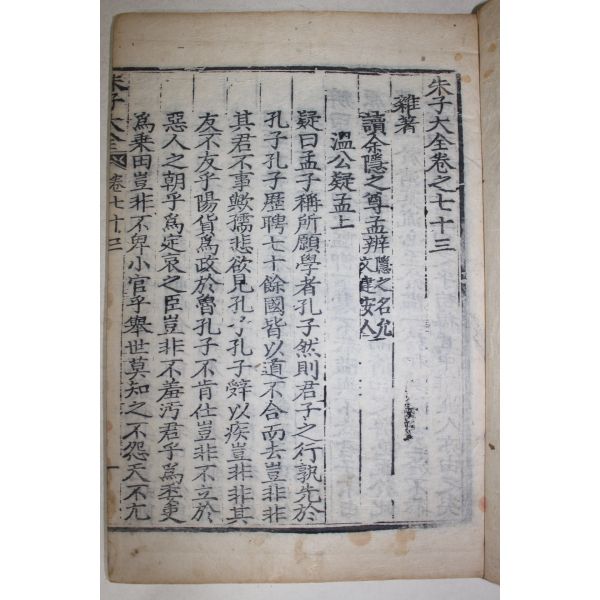 朱子大全卷之七十三
雜著
讀余隱之尊孟辨隱之名允文建安人
溫公疑孟上
疑曰孟子稱所願學者孔子然則君子之行孰先於
孔子孔子歷聘七十餘國皆以道不合而去豈非非
其君不事歟孺悲欲見孔子孔子辭以疾豈非非其
友不友乎陽貨爲政於魯孔子不肯仕豈非不立於
惡人之朝乎爲定哀之臣豈非不羞汚君乎爲委吏
爲乘田豈非不卑小官乎舉世莫知之不怨天不尤
朱子大全 卷七十三 一